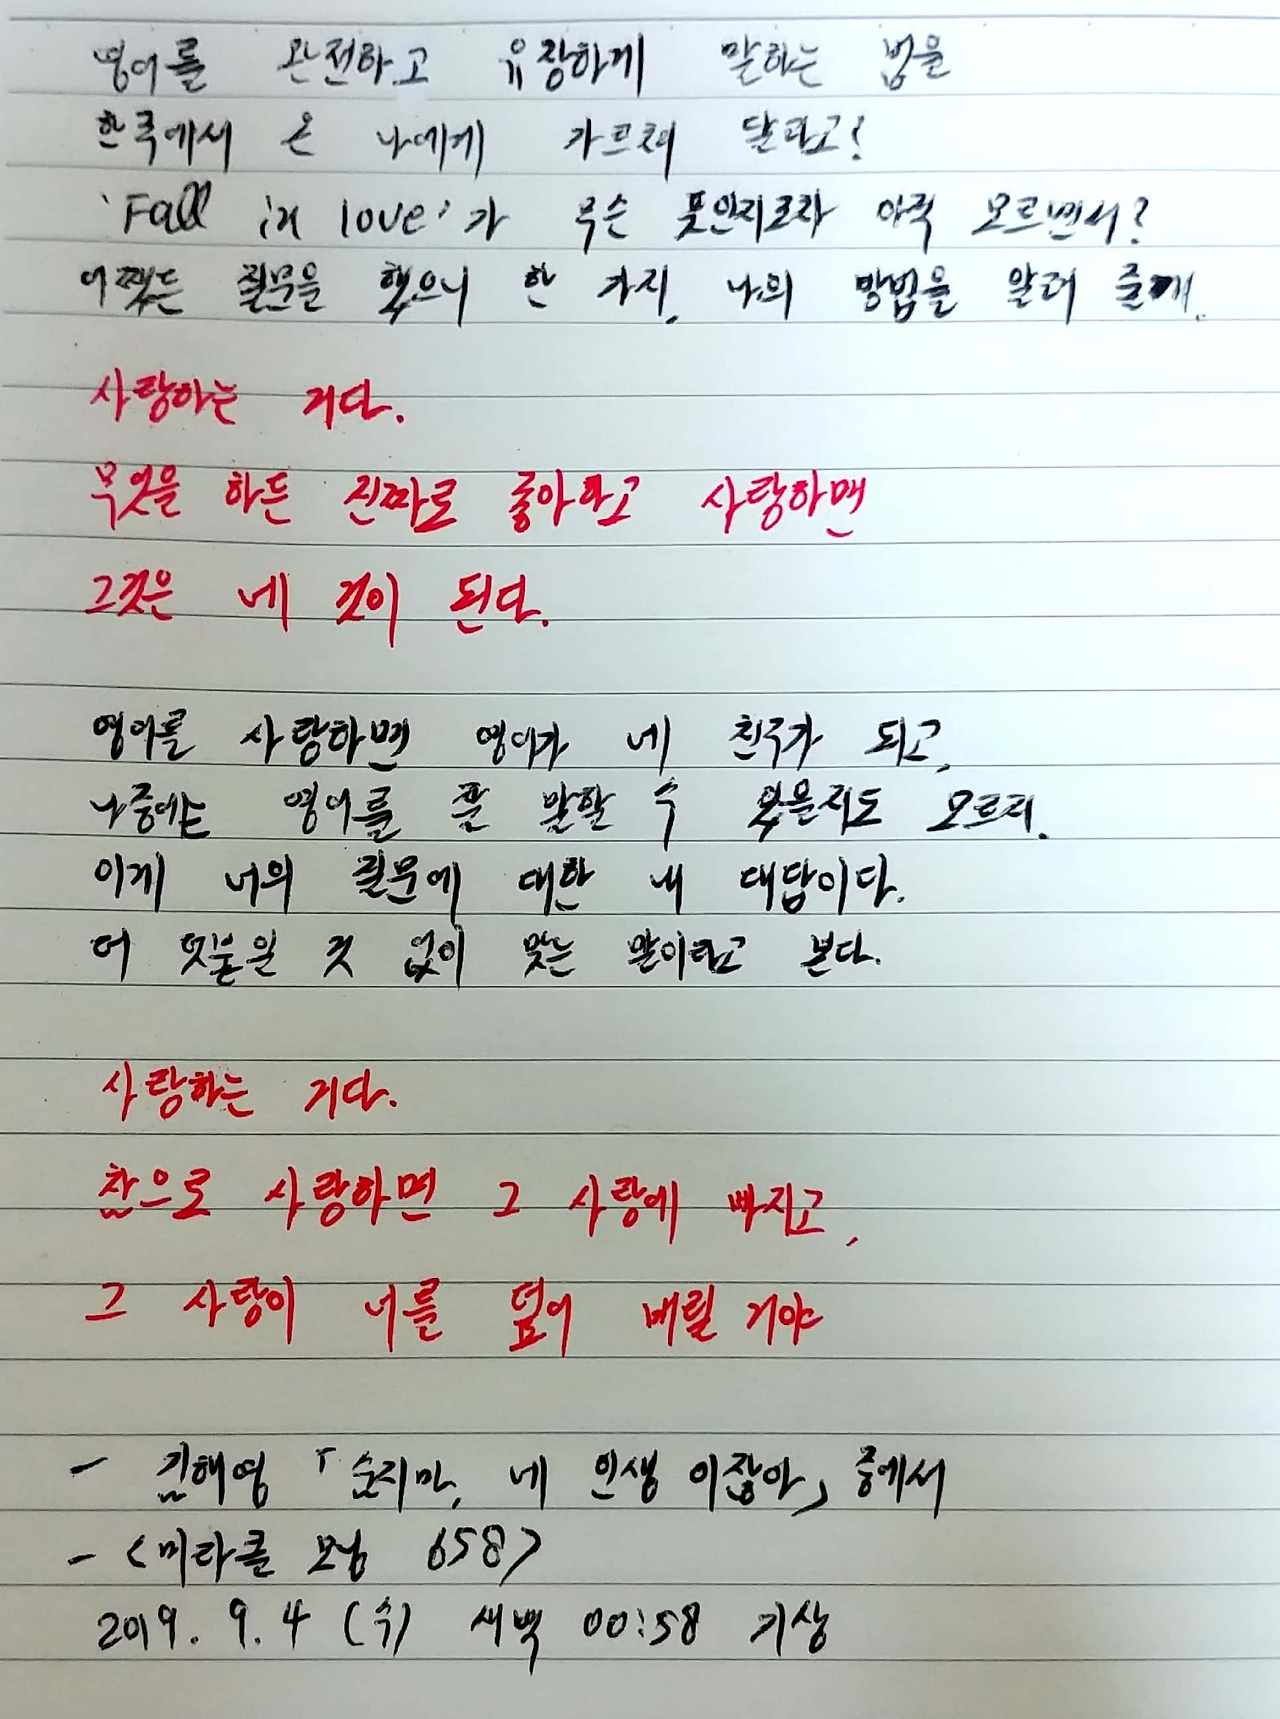 영어를 완전하고 유창하게 말하는 법을
한국에서 온 나에게 가르쳐 달라고?
'Fall in love'가 무슨 뜻인지조차 아직 모르면서?
어쨌든 질문을 했으니 한 가지, 나의 방법을 알려 줄게.
사랑하는 거다.
무엇을 하든 진짜로 좋아하고 사랑하면
그것은 네 것이 된다.
영어를 사랑하면 영어가 네 친구가 되고,
나중에는 영어를 잘 말할 수 있을지도 모르지.
이게 너의 질문에 대한 내 대답이다.
더 덧붙일 것 없이 맞는 말이라고 본다.
사랑하는 거다.
참으로 사랑하면 그 사랑에 빠지고,
그 사랑이 너를 덮어 버릴 거야
- 김해영 「숨지마, 네 인생이잖아」 중에서
- <미라클 모닝 658>
2019. 9. 4 (수) 새벽 00:58 기상